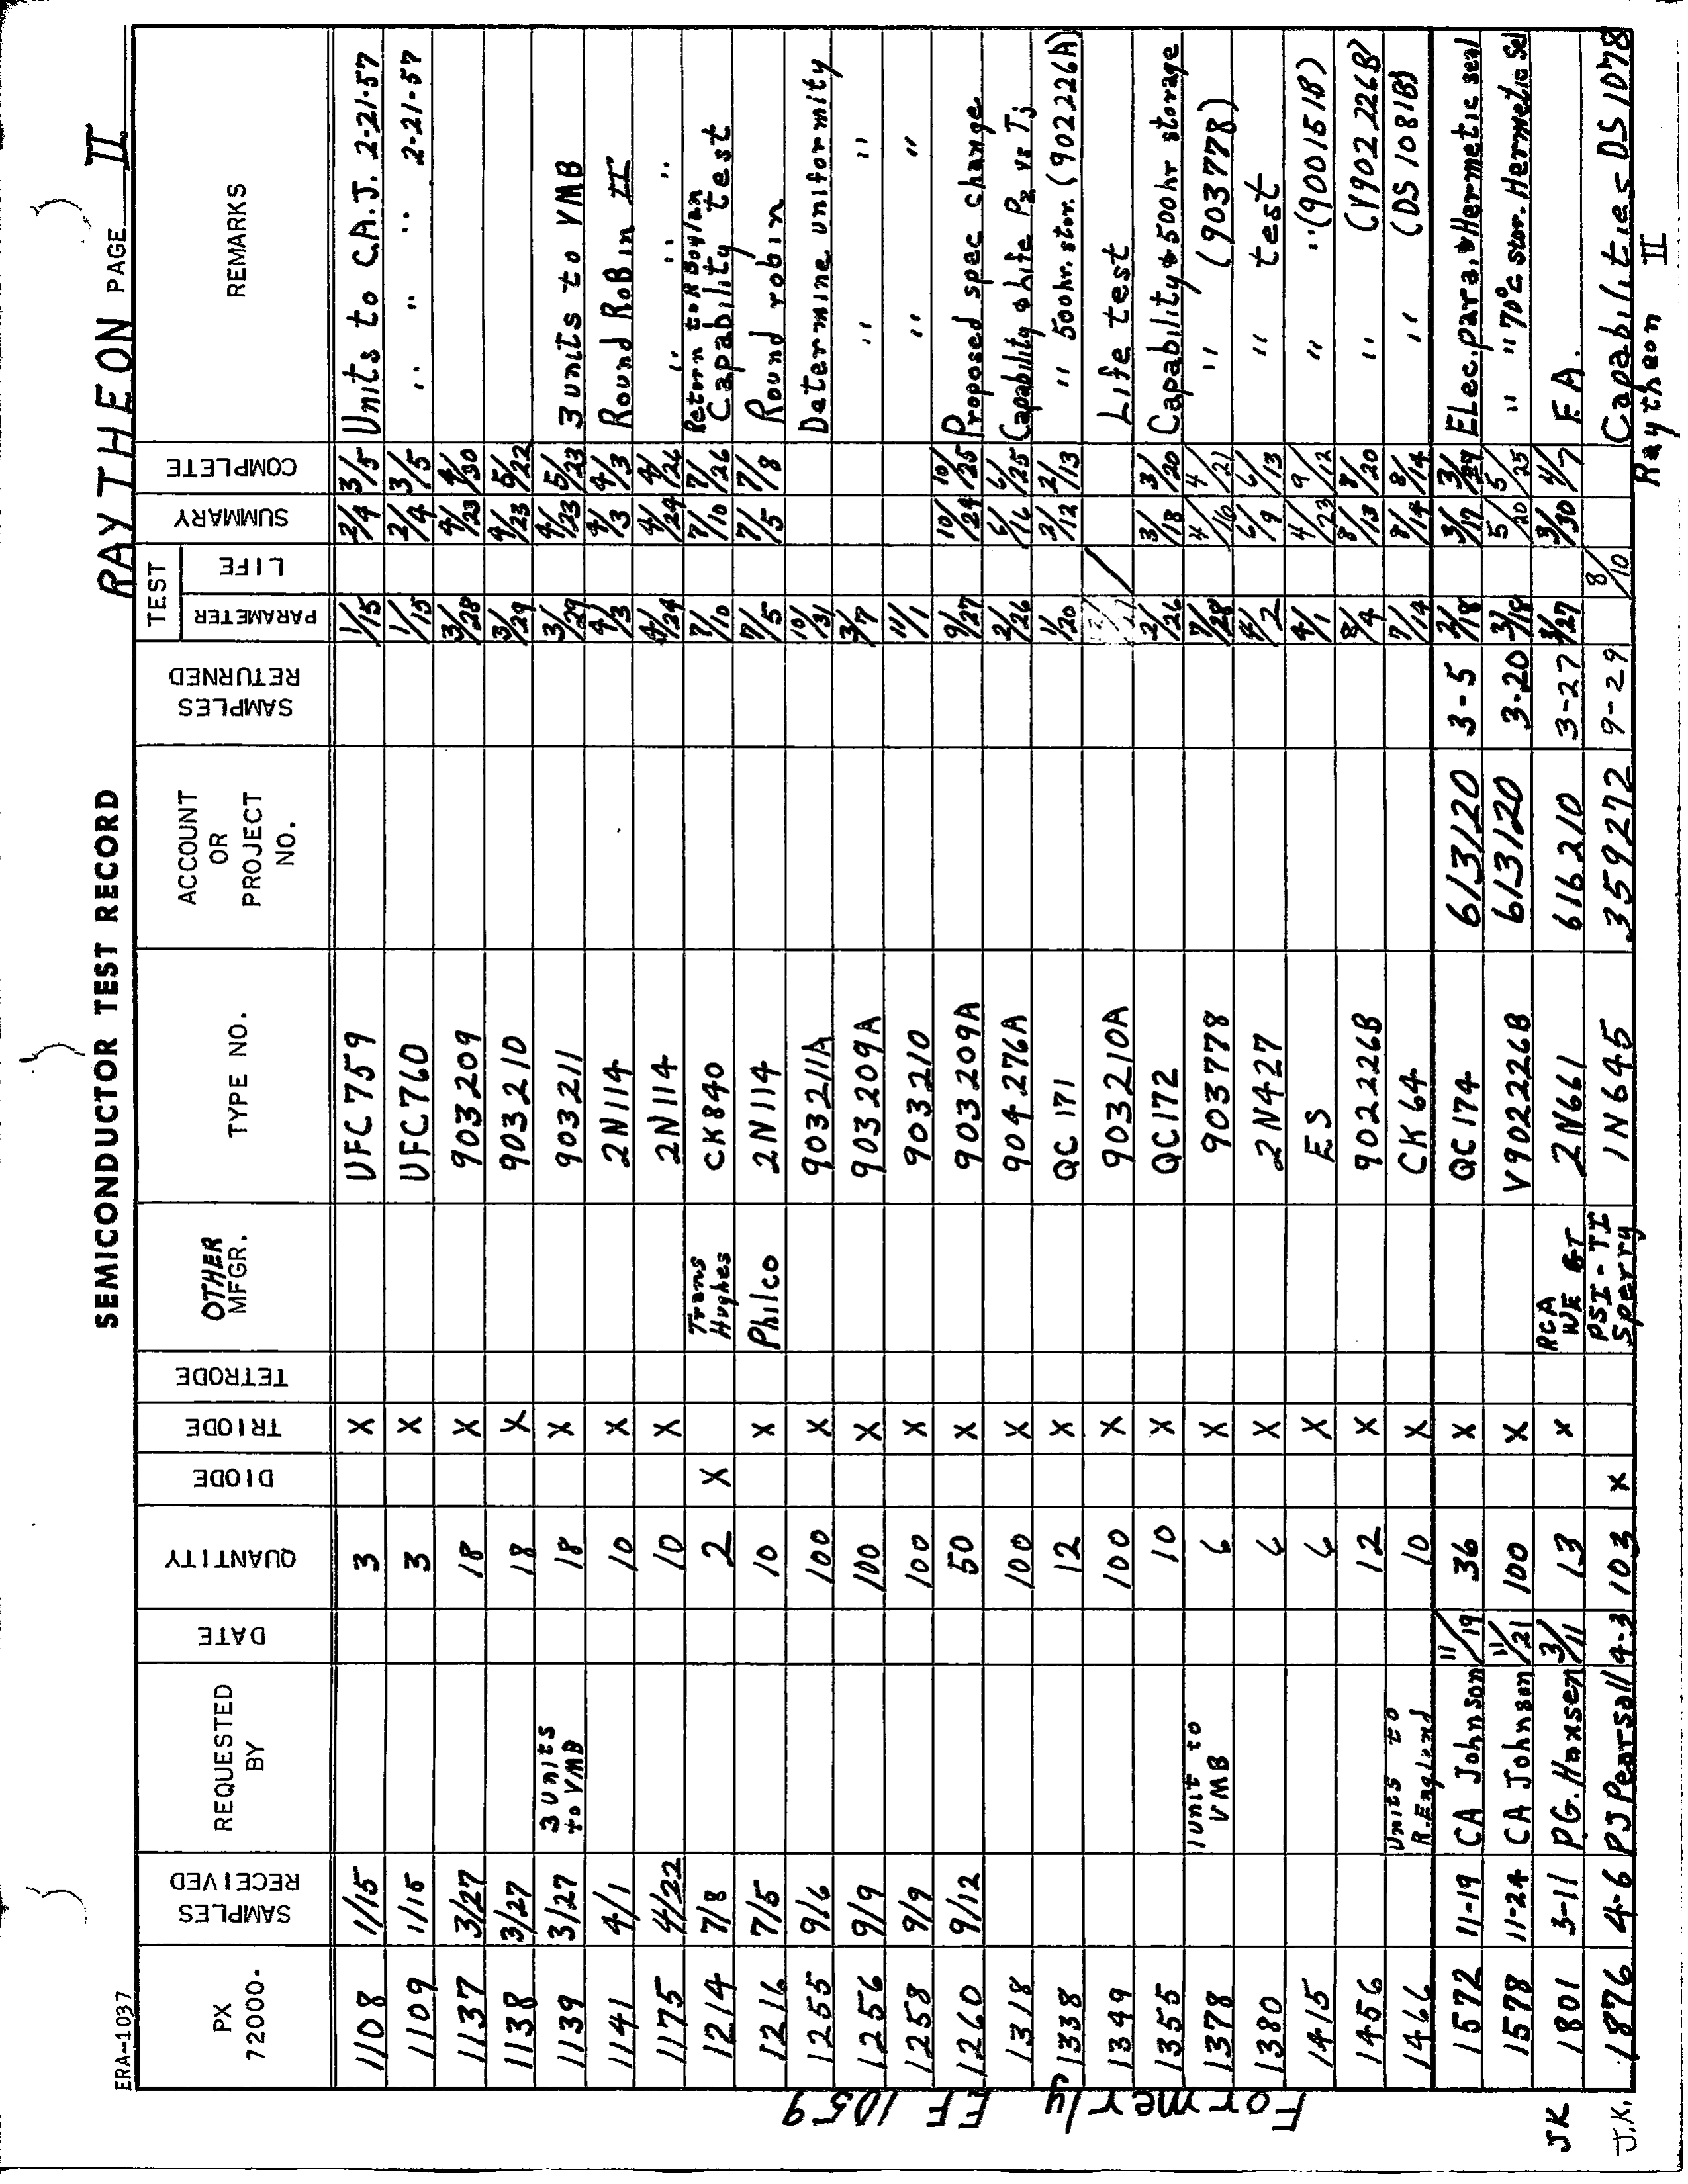 ERA-1037
SEMICONDUCTOR TEST RECORD
RAYTHEON PAGE II
PX 72000. SAMPLES RECEIVED REQUESTED BY DATE QUANTITY DIODE TRIODE TETRODE OTHER MFGR. TYPE NO. ACCOUNT OR PROJECT NO. SAMPLES RETURNED TEST PARAMETER LIFE SUMMARY COMPLETE REMARKS
1108 1/15 3 X UFC759 1/15 2/4 3/5 Units to C.A.J. 2-21-57
1109 1/15 3 X UFC760 1/15 2/4 3/5 " " " 2-21-57
1137 3/27 18 X 903209 3/28 4/23 4/30
1138 3/27 18 X 903210 3/29 4/23 5/22
1139 3/27 3 Units to VMB 18 X 903211 3/29 4/23 5/23 3 units to VMB
1141 4/1 10 X 2N114 4/3 4/3 4/3 Round RoBin II
1175 4/22 10 X 2N114 4/24 4/24 4/26 " " "
1214 7/8 2 X Trans Hughes CK840 7/10 7/10 7/26 Return to R Boylan Capability test
1216 7/5 10 X Philco 2N114 7/5 7/5 7/8 Round robin
1255 9/6 100 X 903211A 10/31 Determine uniformity
1256 9/9 100 X 903209A 3/7 " "
1258 9/9 100 X 903210 11/1 " "
1260 9/12 50 X 903209A 9/27 10/24 10/25 Proposed spec change
1318 100 X 904276A 2/26 6/16 6/25 Capability & life Pz vs Tj
1338 12 X QC171 1/20 3/12 2/13 " 500hr. stor. (902226A)
1349 100 X 903210A Life test
1355 10 X QC172 2/26 3/18 3/20 Capability & 500hr storage
1378 1 Unit to VMB 6 X 903778 7/28 4/16 4/21 " (903778)
1380 6 X 2N427 4/2 6/9 6/13 " test
1415 6 X ES 4/1 4/23 9/12 " " (900151B)
1456 12 X 902226B 8/4 8/13 8/20 " (V902226B)
1466 Units to R.England 10 X CK64 7/14 8/14 8/14 " (DS1081B)
1572 11-19 CA Johnson 11/19 36 X QC174 613120 3-5 2/18 3/17 3/29 Elec.para. & Hermetic seal
1578 11-24 CA Johnson 11/21 100 X V902226B 613120 3-20 3/18 5/20 5/25 " " 70°C stor. Hermetic Sel
JK 1801 3-11 P.G. Hansen 3/11 13 X RCA WE GT 2N661 616210 3-27 3/27 3/30 4/7 F.A.
J.K. 1876 4-6 PJ Pearsall 4-3 103 X PSI-TI Sperry 1N645 359272 9-29 8/10 Capabilities DS1078
Formerly EF 1059
Raytheon II